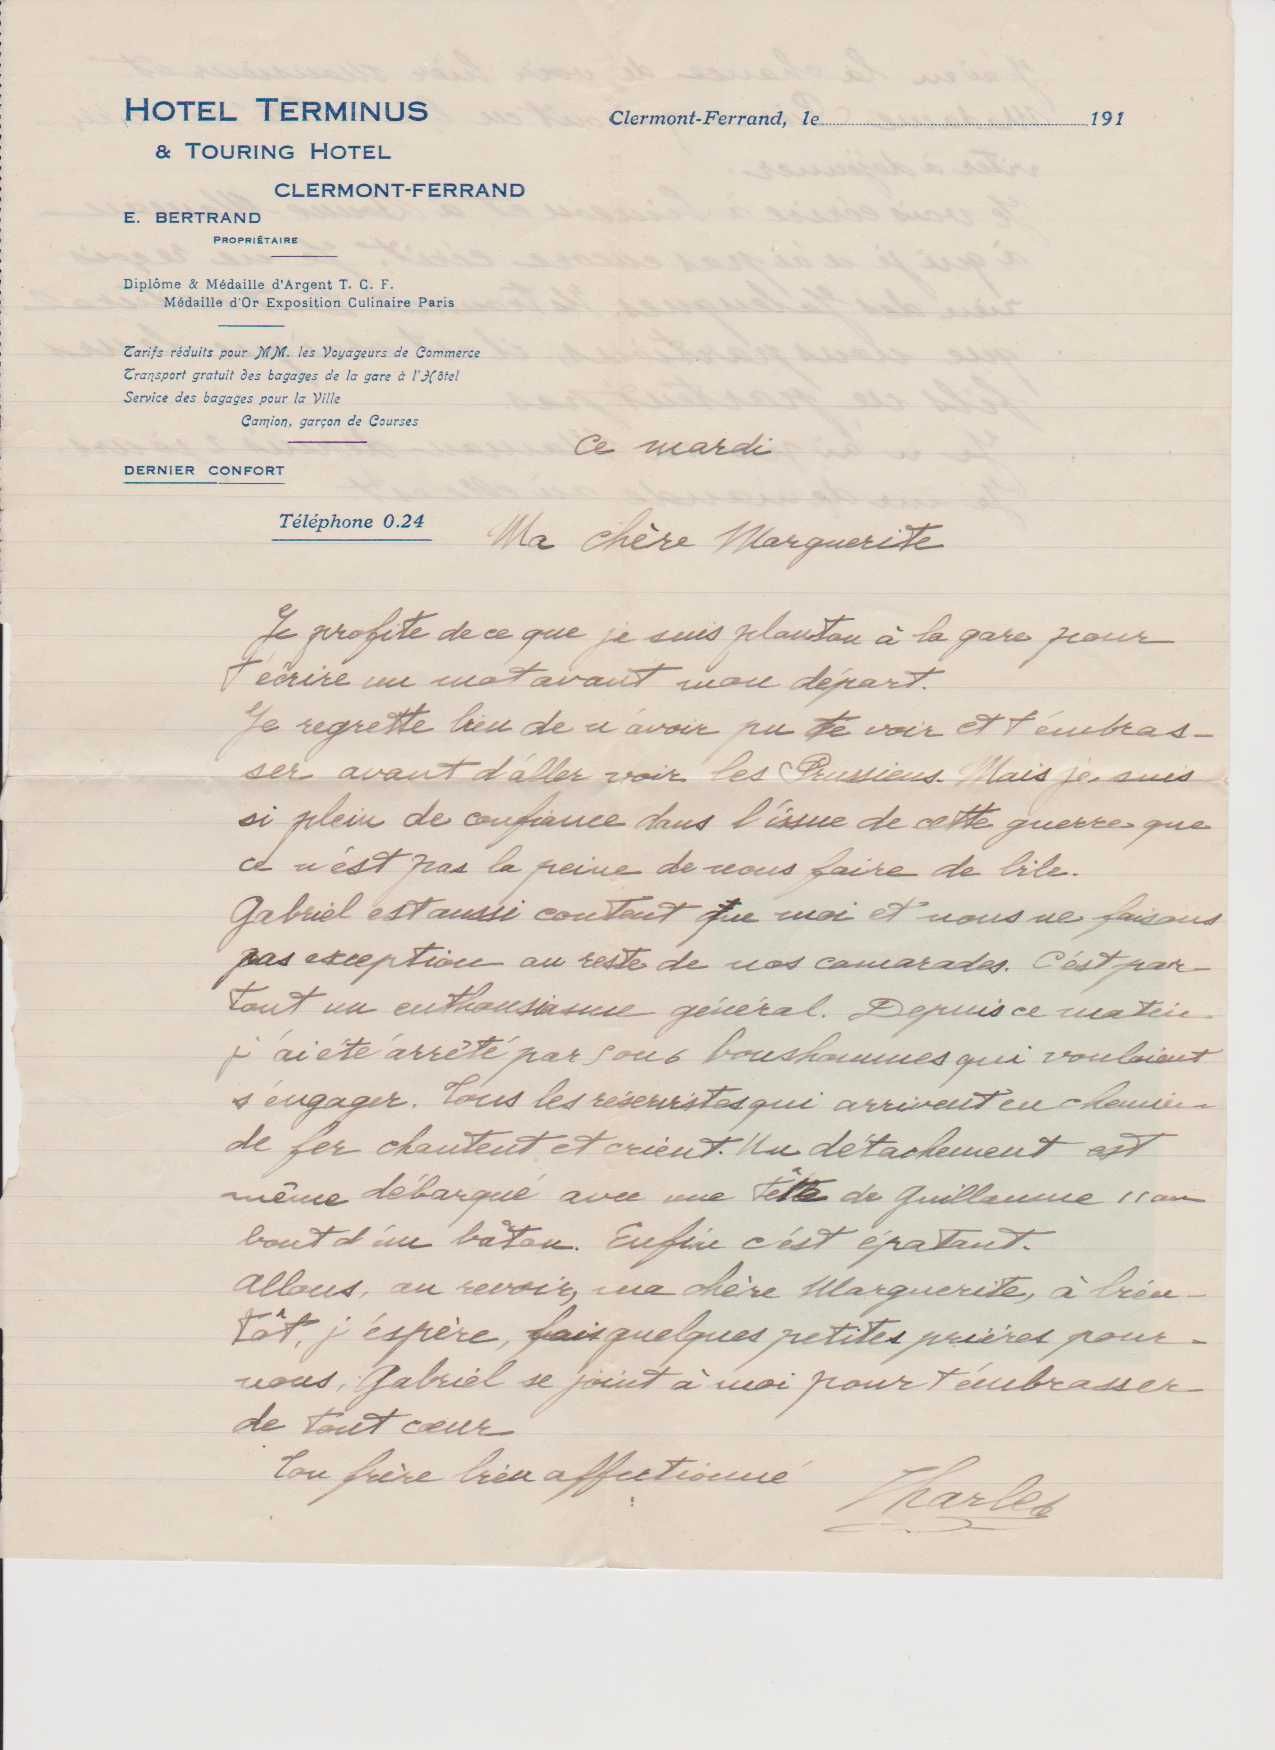 HOTEL TERMINUS
& TOURING HOTEL
CLERMONT-FERRAND
E. BERTRAND
PROPRIÉTAIRE
Diplôme & Médaille d'Argent T. C. F.
Médaille d'Or Exposition Culinaire Paris
Tarifs réduits pour MM. les Voyageurs de Commerce
Transport gratuit des bagages de la gare à l'Hôtel
Service des bagages pour la Ville
Camion, garçon de Courses
DERNIER CONFORT
Téléphone 0.24
Clermont-Ferrand, le 191
Ce mardi
Ma chère Marguerite
Je profite de ce que je suis planton à la gare pour
t'écrire un mot avant mon départ.
Je regrette bien de n'avoir pu te voir et t'embras-
ser avant d'aller voir les Prussiens. Mais je suis
si plein de confiance dans l'issue de cette guerre que
ce n'est pas la peine de nous faire de bile.
Gabriel est aussi content que moi et nous ne faisons
pas exception au reste de nos camarades. C'est par-
tout un enthousiasme général. Depuis ce matin
j'ai été arrêté par 5 ou 6 bonshommes qui voulaient
s'engager. Tous les réservistes qui arrivent en chemin
de fer chantent et crient. Un détachement est
même débarqué avec une tête de Guillaume II au
bout d'un bâton. Enfin c'est épatant.
Allons, au revoir, ma chère Marguerite, à bien-
tôt, j'espère, fais quelques petites prières pour
nous, Gabriel se joint à moi pour t'embrasser
de tout cœur
Ton frère bien affectionné
Charles